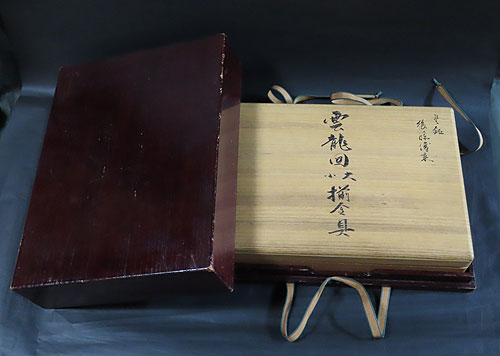 無銘
後藤清乗
雲龍図大小揃金具